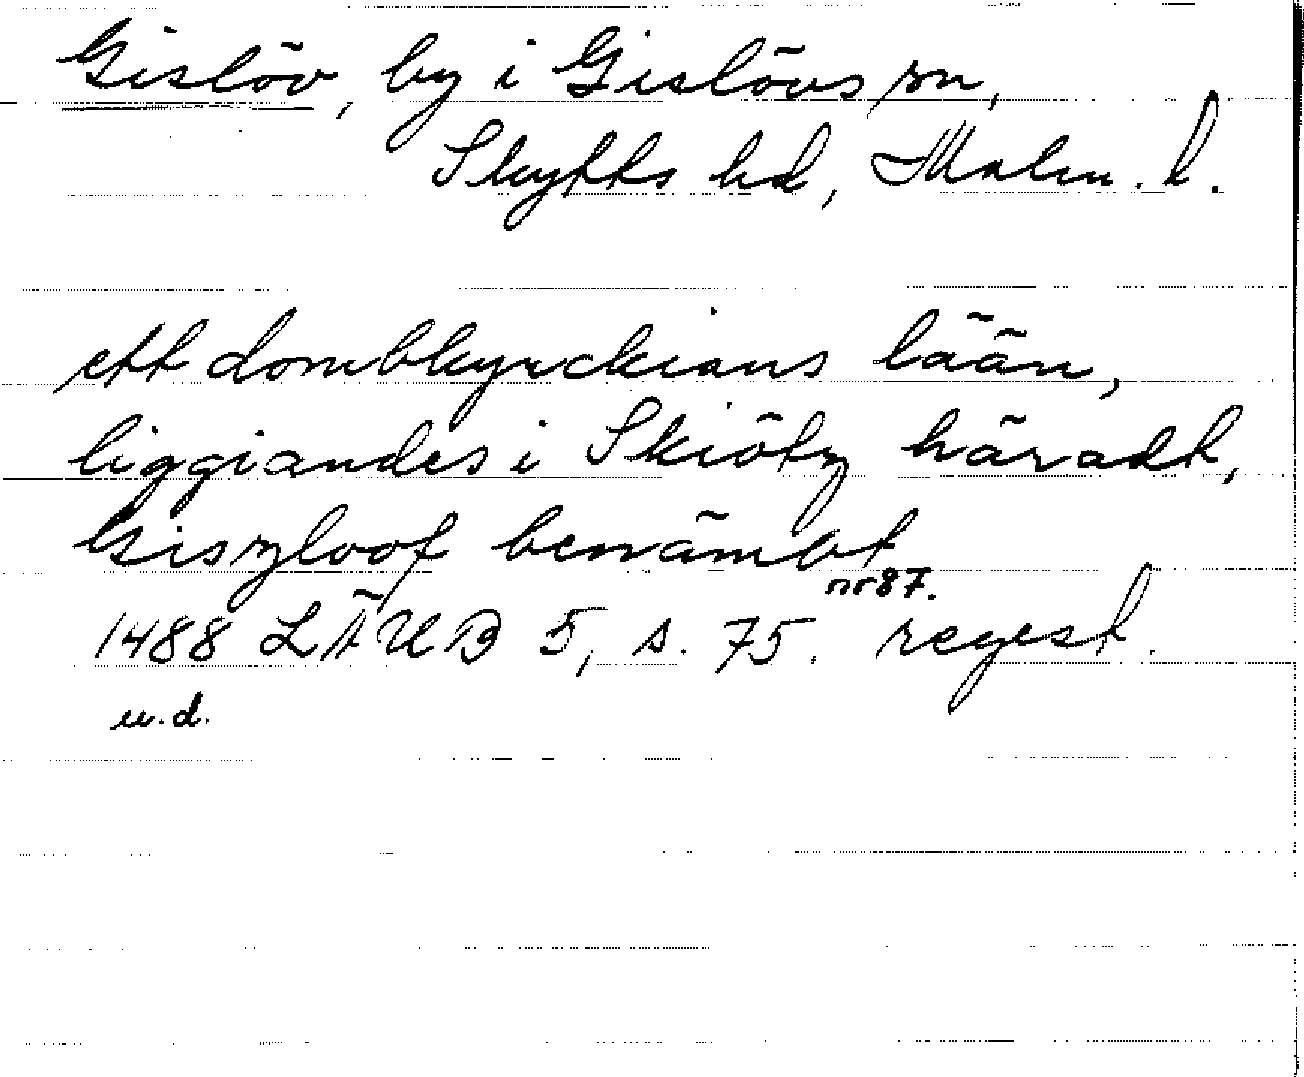 Gislöv, by i Gislövs sn,
Skytts hd, Malm. l.
ett dombkyrckians lään,
liggiandes i Skiötz häradt,
Giszloof benämbt
nr 87.
1488 LÄUB 5, s. 75. regest.
u.d.